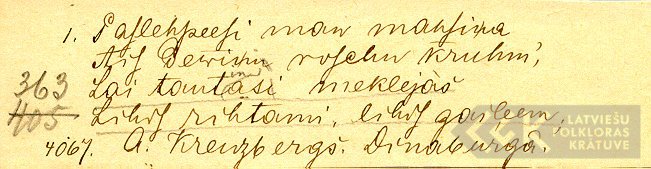 1. Paslehpeesi man mahsiņa
Ais Dewiņu roschu kruhmi,
363 Lai tautasi meklejās
405 Lihds rihtami, lihds gaileem,
4067. A. Kreuzbergs. Dinaburgā.
LATVIEŠU
FOLKLORAS
KRĀTUVE